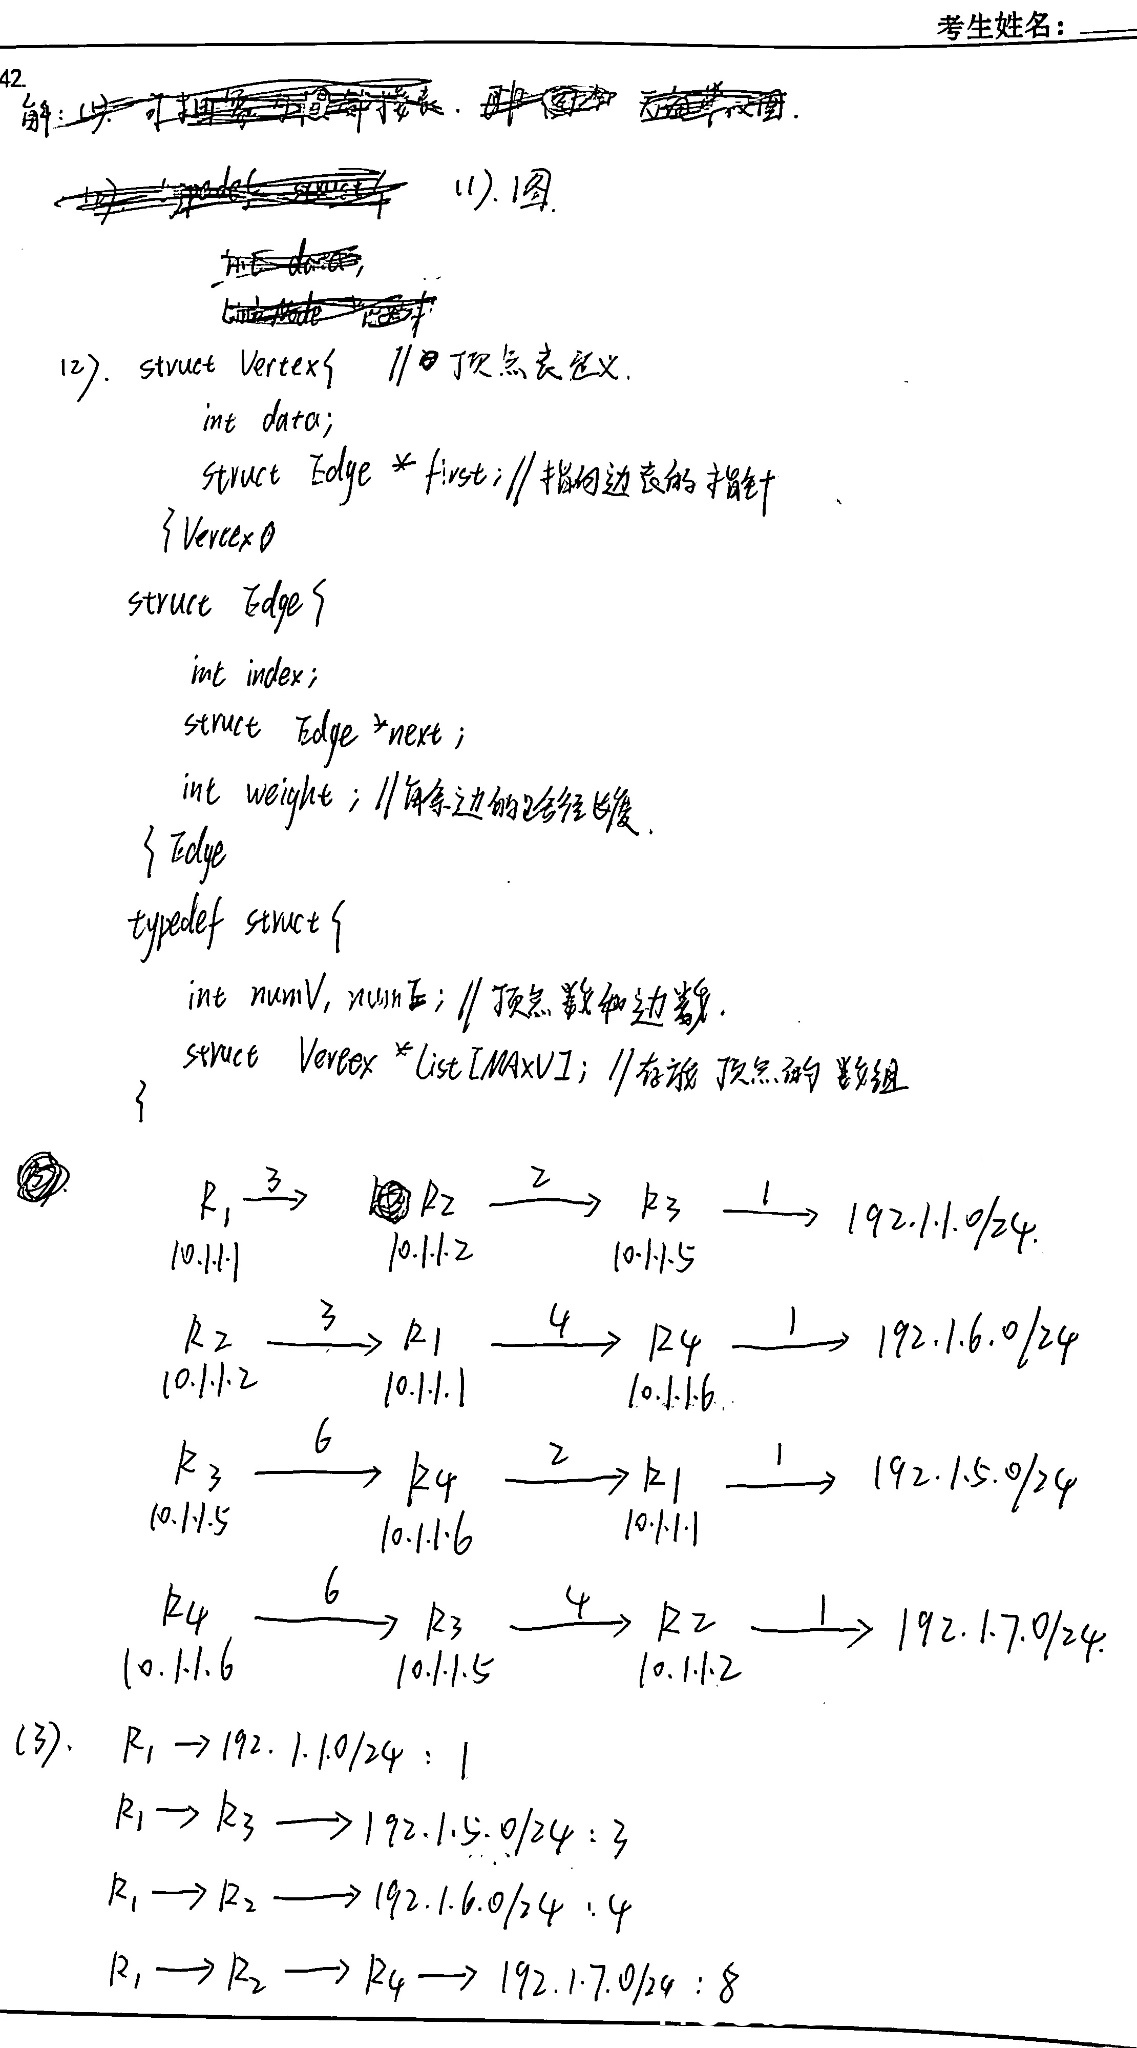 考生姓名：
42.
解：
(1). 图.
(2). struct Vertex{ // 顶点表定义.
int data;
struct Edge * first; // 指向边表的指针
}Vertex
struct Edge{
int index;
struct Edge *next;
int weight; // 每条边的路径长度.
}Edge
typedef struct{
int numV, numE; // 顶点数和边数.
struct Vertex *List[MAXV]; // 存放顶点的数组
}
R1 3→ R2 2→ R3 1→ 192.1.1.0/24.
10.1.1.1 10.1.1.2 10.1.1.5
R2 3→ R1 4→ R4 1→ 192.1.6.0/24
10.1.1.2 10.1.1.1 10.1.1.6
R3 6→ R4 2→ R1 1→ 192.1.5.0/24
10.1.1.5 10.1.1.6 10.1.1.1
R4 6→ R3 4→ R2 1→ 192.1.7.0/24.
10.1.1.6 10.1.1.5 10.1.1.2
(3). R1 → 192.1.1.0/24 : 1
R1 → R3 → 192.1.5.0/24 : 3
R1 → R2 → 192.1.6.0/24 : 4
R1 → R2 → R4 → 192.1.7.0/24 : 8